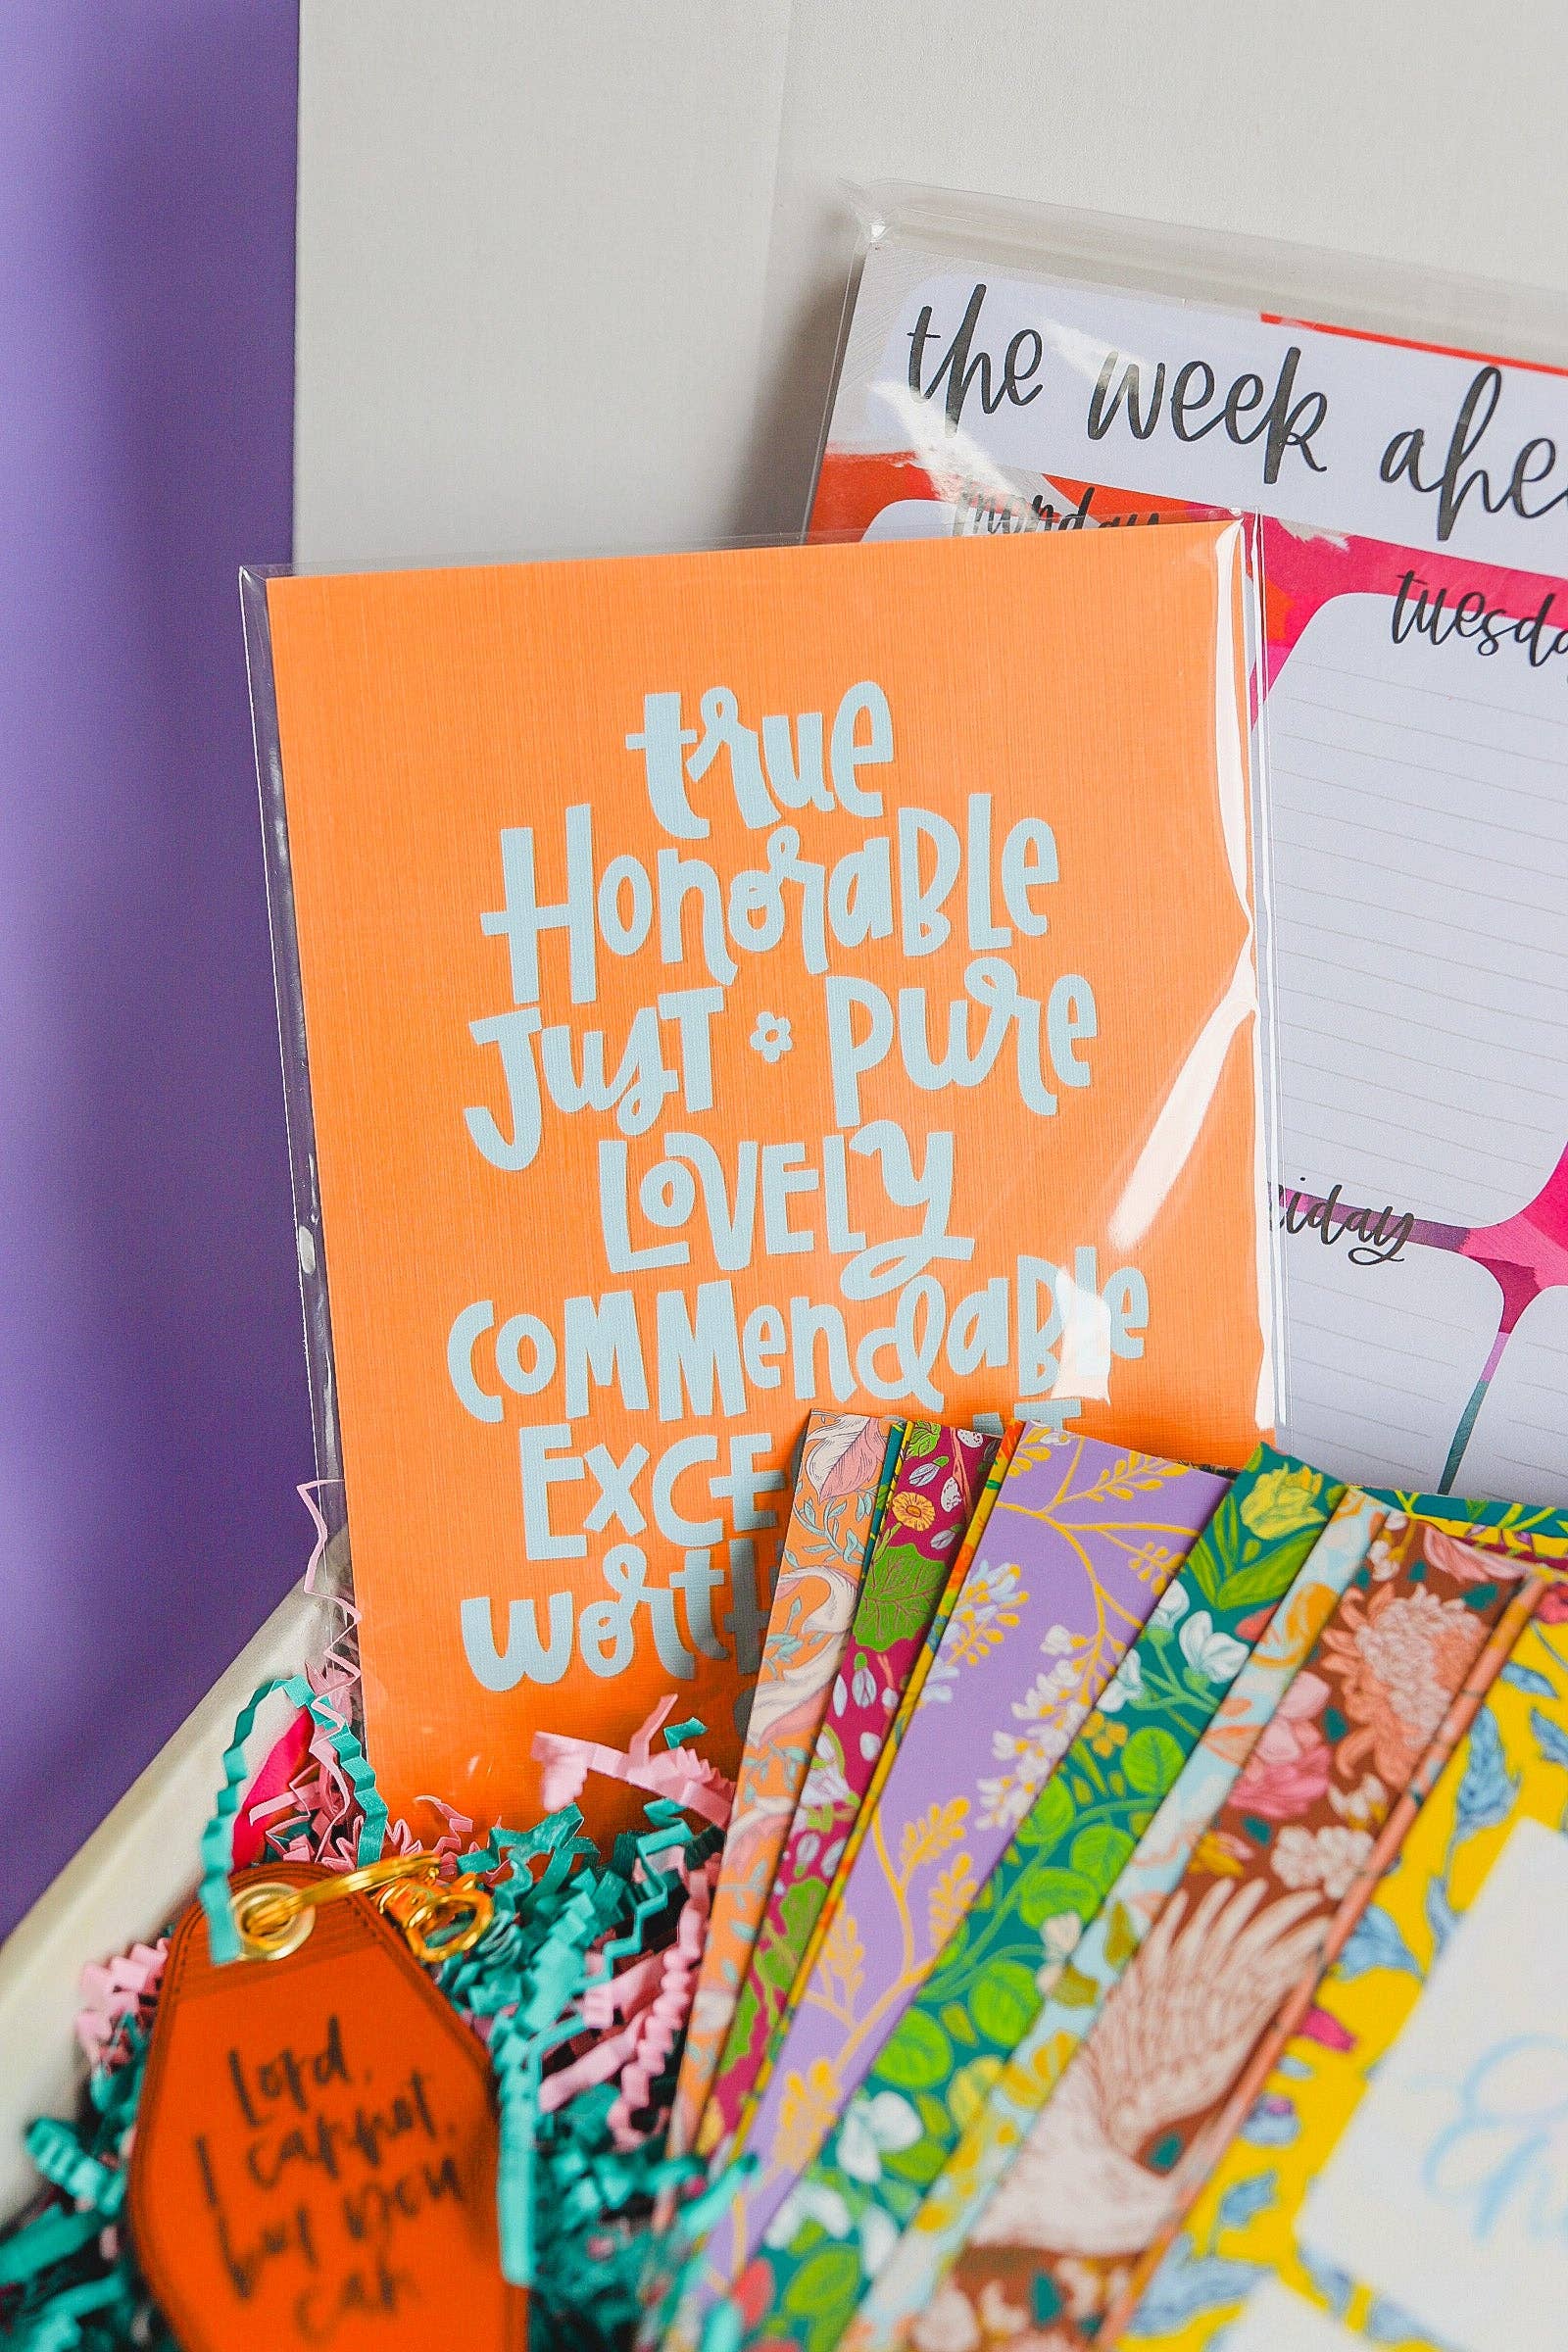 the week ahe
monday
tuesda
true
Honorable
Just pure
Lovely
Commendable
Exce
worth
iday
Lord,
I cannot,
but you
can